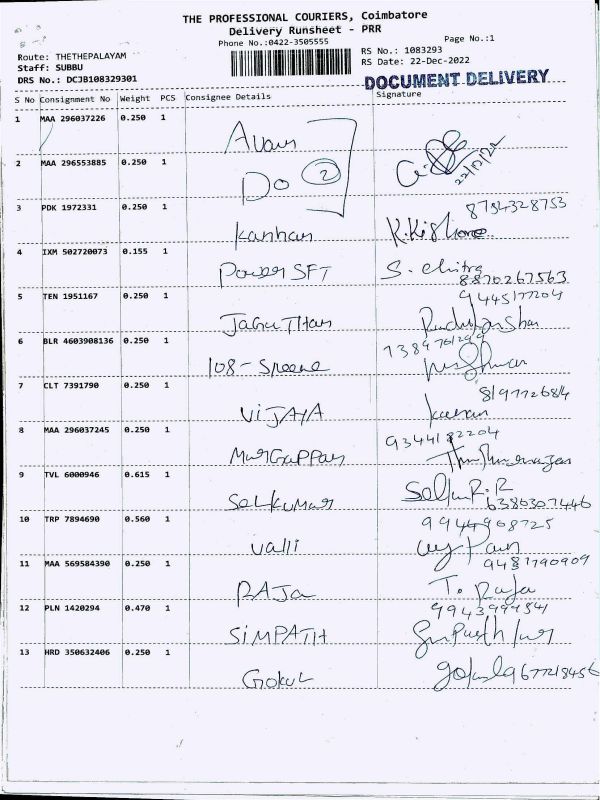 THE PROFESSIONAL COURIERS, Coimbatore
Delivery Runsheet - PRR
Phone No.:0422-3505555
Page No.:1
Route: THETHEPALAYAM
Staff: SUBBU
DRS No.: DCJB108329301
RS No.: 1083293
RS Date: 22-Dec-2022
DOCUMENT DELIVERY
S No Consignment No Weight PCS Consignee Details Signature
1 MAA 296037226 0.250 1
2 MAA 296553885 0.250 1 Do 2 22/12/22
3 PDK 1972331 0.250 1 Kanhan K.Kishore 8754328753
4 IXM 502720073 0.155 1 Power SFT S. chitra 8870267563
5 TEN 1951167 0.250 1 9445177204
6 BLR 4603908136 0.250 1 108-Sreene
7 CLT 7391790 0.250 1 VIJAYA
8 MAA 296037245 0.250 1 MurGappan 9344182204
9 TVL 6000946 0.615 1 SelKumar 6380307446
10 TRP 7894690 0.560 1 valli 9944968725
11 MAA 569584390 0.250 1 RAJa T. Raja 9481790909
12 PLN 1420294 0.470 1 SIMPATH
13 HRD 350632406 0.250 1 GOKUL gokul 9677218456